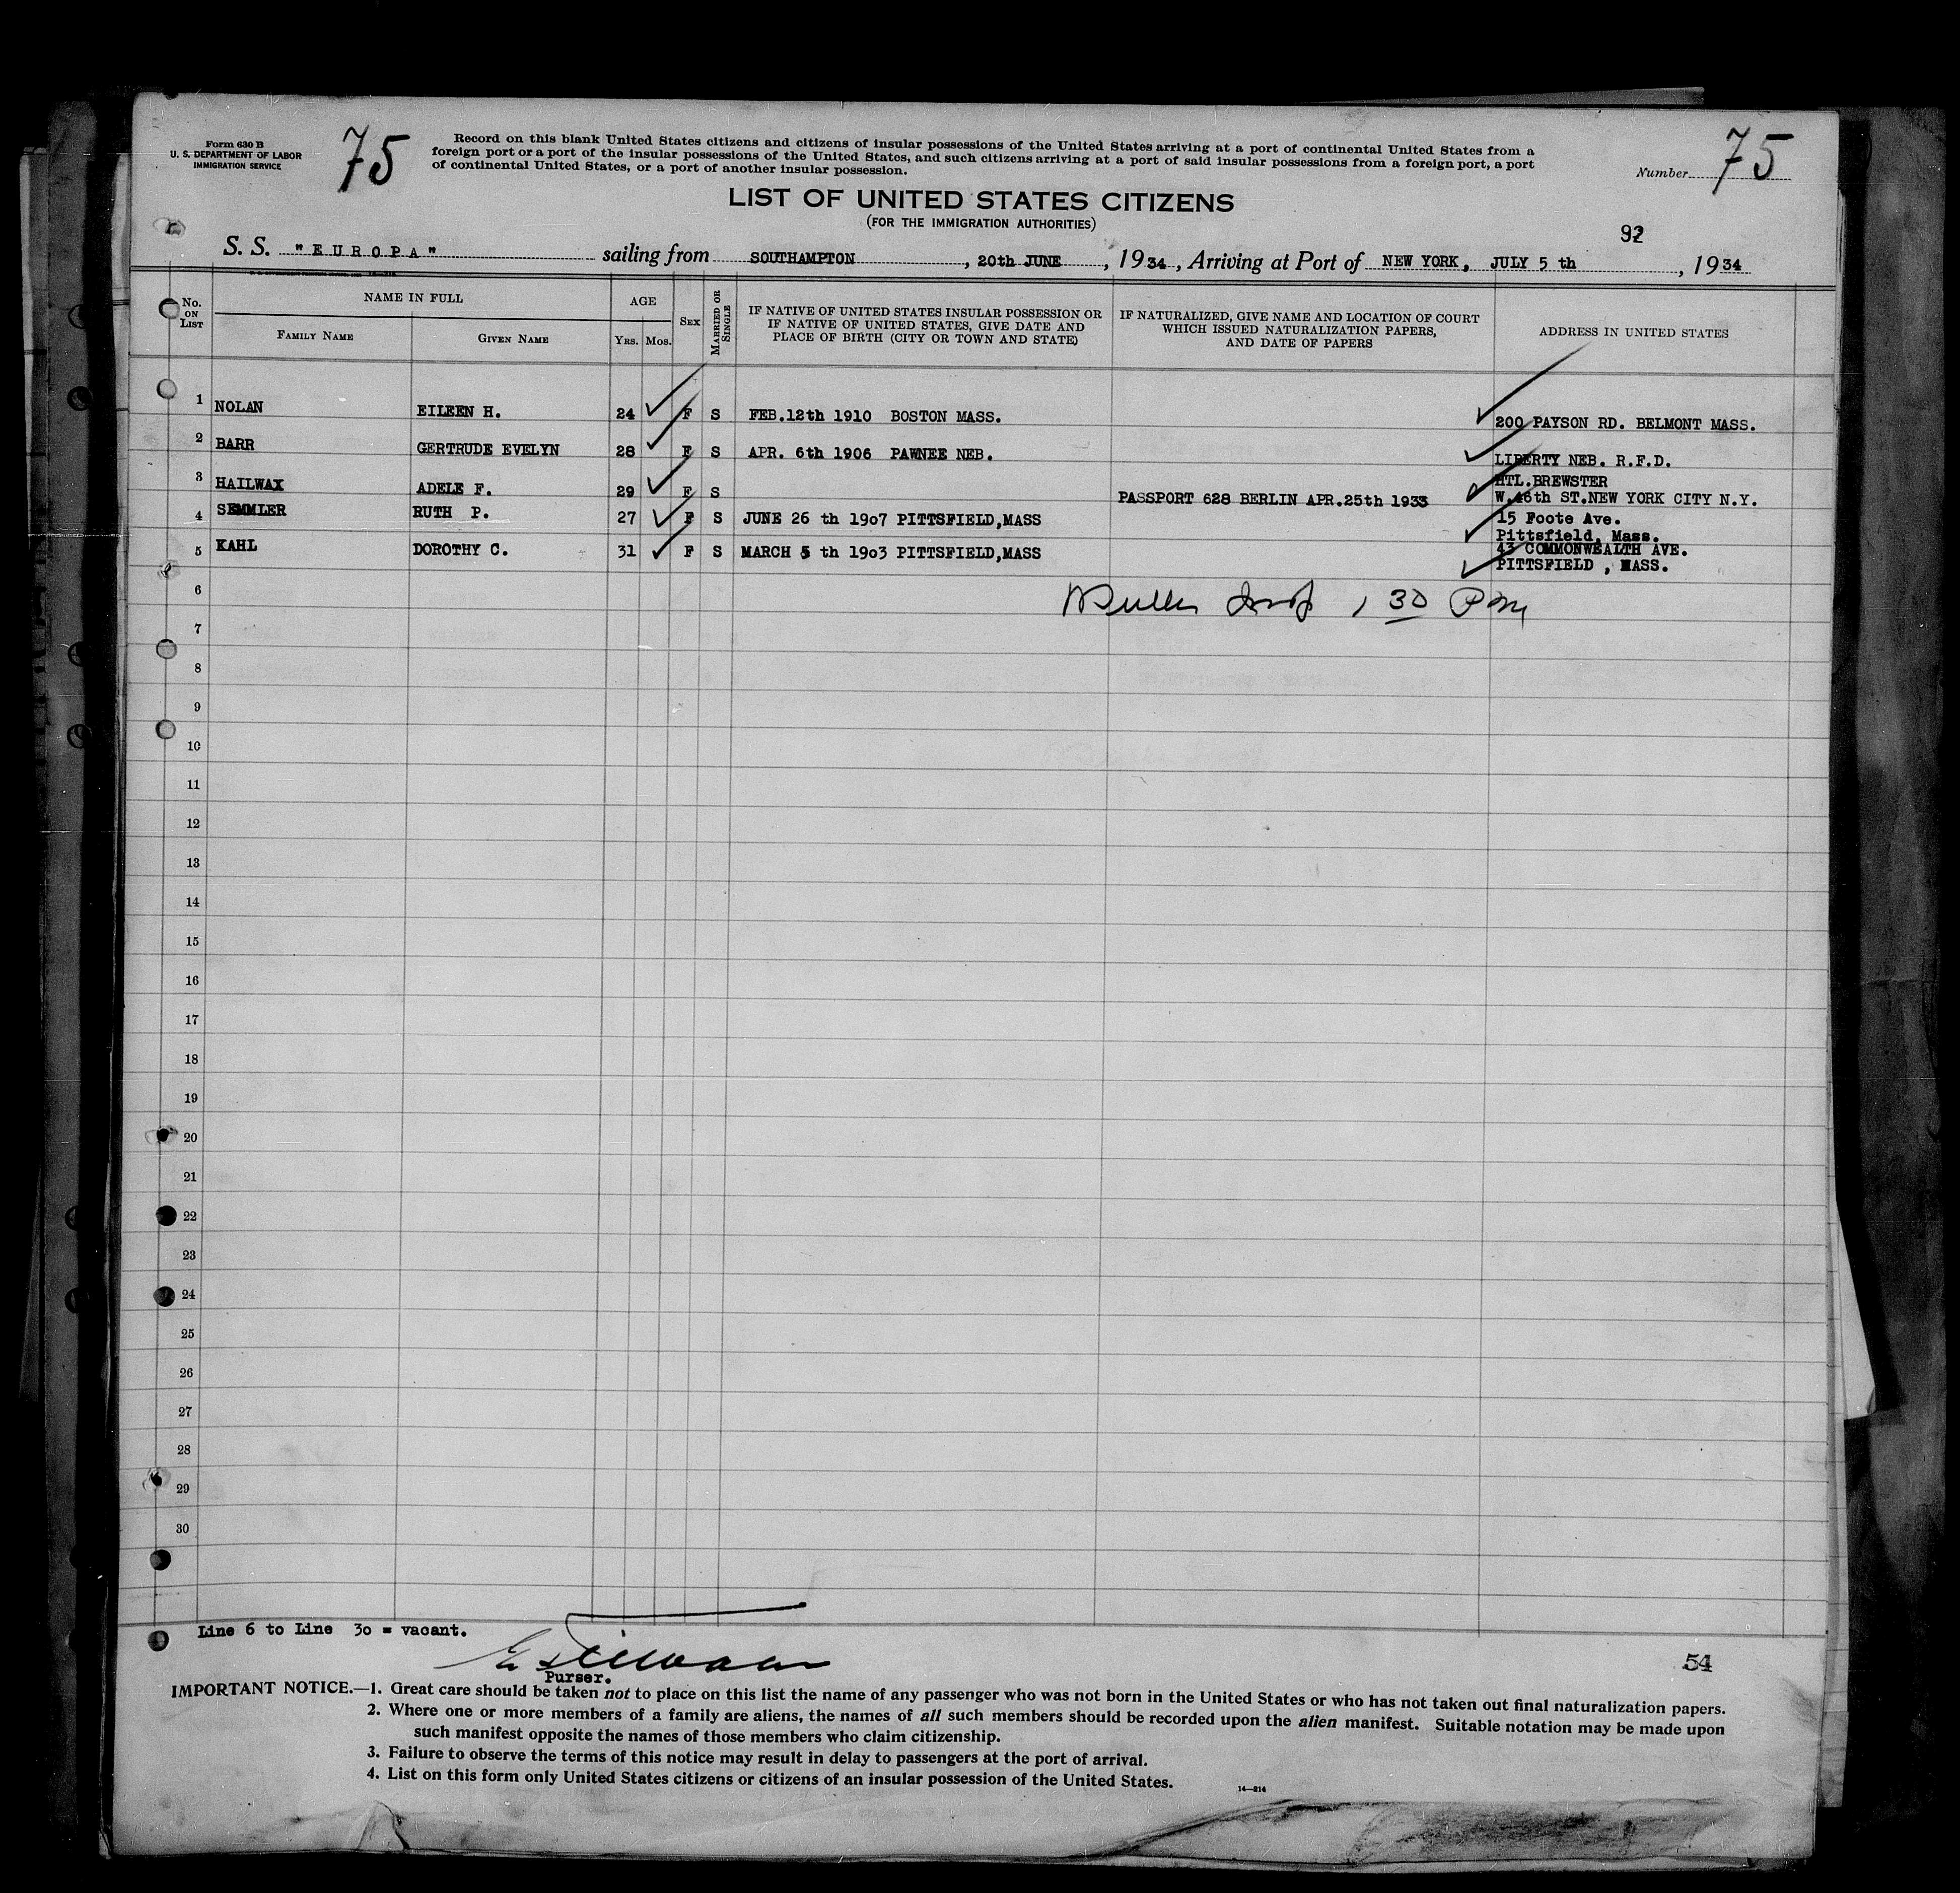 Form 630 B
U. S. DEPARTMENT OF LABOR
IMMIGRATION SERVICE
75
Record on this blank United States citizens and citizens of insular possessions of the United States arriving at a port of continental United States from a
foreign port or a port of the insular possessions of the United States, and such citizens arriving at a port of said insular possessions from a foreign port, a port
of continental United States, or a port of another insular possession.
Number 75
LIST OF UNITED STATES CITIZENS
(FOR THE IMMIGRATION AUTHORITIES)
92
S. S. "EUROPA" sailing from SOUTHAMPTON, 20th JUNE, 1934, Arriving at Port of NEW YORK, JULY 5 th, 1934
No. ON LIST
NAME IN FULL
FAMILY NAME
GIVEN NAME
AGE
YRS. MOS.
SEX
MARRIED OR SINGLE
IF NATIVE OF UNITED STATES INSULAR POSSESSION OR
IF NATIVE OF UNITED STATES, GIVE DATE AND
PLACE OF BIRTH (CITY OR TOWN AND STATE)
IF NATURALIZED, GIVE NAME AND LOCATION OF COURT
WHICH ISSUED NATURALIZATION PAPERS,
AND DATE OF PAPERS
ADDRESS IN UNITED STATES
1 NOLAN EILEEN H. 24 F S FEB.12th 1910 BOSTON MASS. 200 PAYSON RD. BELMONT MASS.
2 BARR GERTRUDE EVELYN 28 F S APR. 6th 1906 PAWNEE NEB. LIBERTY NEB. R.F.D.
3 HAILWAX ADELE F. 29 F S PASSPORT 628 BERLIN APR.25th 1933 HTL.BREWSTER
W.46th ST.NEW YORK CITY N.Y.
4 SEMMLER RUTH P. 27 F S JUNE 26 th 1907 PITTSFIELD,MASS 15 Foote Ave.
Pittsfield, Mass.
5 KAHL DOROTHY C. 31 F S MARCH 5 th 1903 PITTSFIELD,MASS 43 COMMONWEALTH AVE.
PITTSFIELD , MASS.
6
1 30 PM
7
8
9
10
11
12
13
14
15
16
17
18
19
20
21
22
23
24
25
26
27
28
29
30
Line 6 to Line 30 = vacant.
Purser.
54
IMPORTANT NOTICE.—1. Great care should be taken not to place on this list the name of any passenger who was not born in the United States or who has not taken out final naturalization papers.
2. Where one or more members of a family are aliens, the names of all such members should be recorded upon the alien manifest. Suitable notation may be made upon
such manifest opposite the names of those members who claim citizenship.
3. Failure to observe the terms of this notice may result in delay to passengers at the port of arrival.
4. List on this form only United States citizens or citizens of an insular possession of the United States.
14—214